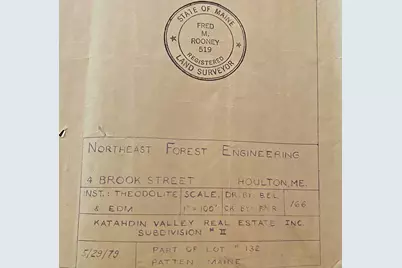 STATE OF MAINE
FRED
M.
ROONEY
519
REGISTERED
LAND SURVEYOR
NORTHEAST FOREST ENGINEERING
4 BROOK STREET HOULTON, ME.
INST: THEODOLITE SCALE: DR. BY: BEL 166
& EDM 1"=100' CH. BY: FMR
KATAHDIN VALLEY REAL ESTATE INC.
SUBDIVISION # II
5/29/79 PART OF LOT # 132
PATTEN MAINE